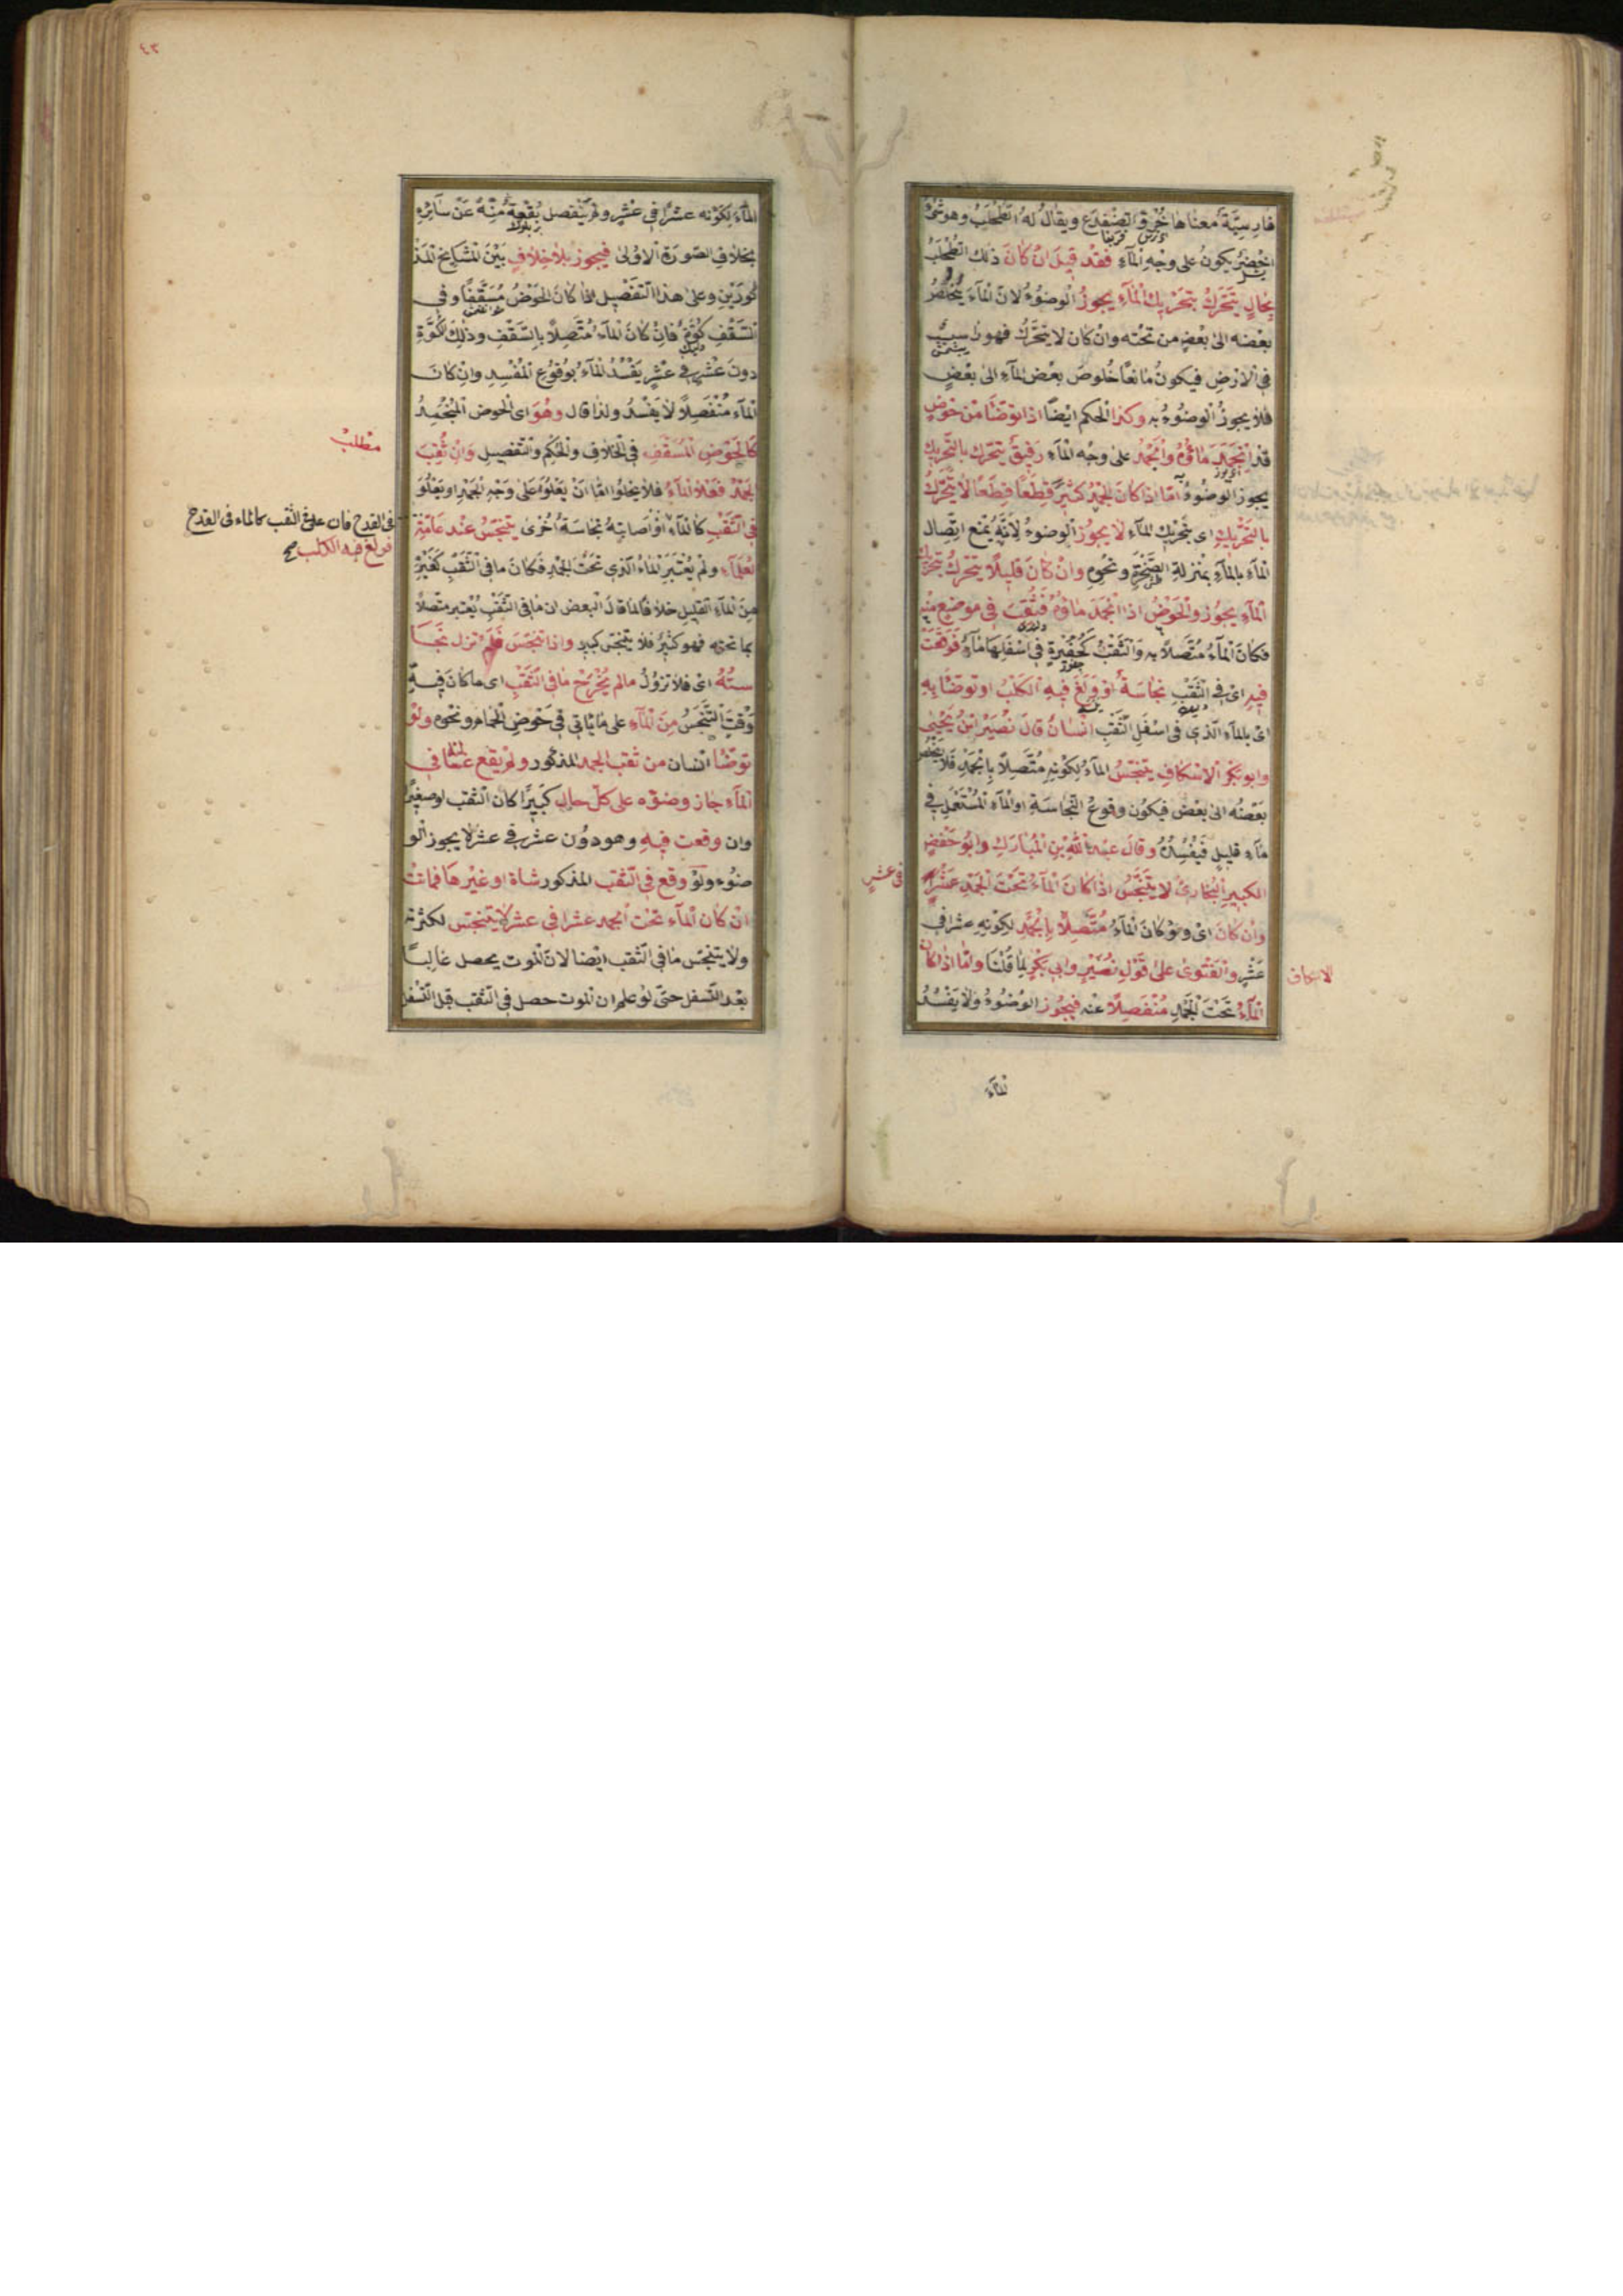 فارسيّة معناها خُرْؤُ الضفدع ويقال له الطحلب وهو شئ
اخضر يكون على وجه الماء فقد قيل ان كان ذلك الطحلب
بحال يتحرك بتحريك الماء يجوز الوضوء لان الماء يخلص
بعضه الى بعض من تحته وان كان لا يتحرك فهو
في الارض فيكون مانعًا خلوص بعض الماء الى بعض
فلا يجوز الوضوء به وكذا الحكم ايضًا اذا توضّأ من حوض
قد انجمد ماؤه وانجمد على وجه الماء رقيق يتحرك بالتحريك
يجوز الوضوء امّا اذا كان الجمد كثيرًا قِطَعًا قِطَعًا لا يتحرك
بالتحريك اى بتحريك الماء لا يجوز الوضوء لانه يمنع اتصال
الماء بالماء بمنزلة الصخرة ونحوه وان كان قليلًا يتحرك بتحريك
الماء يجوز والحوض اذا انجمد ماؤه فثقب في موضع منه
فكان الماء متّصلًا به والثقب كحفيرة في اسفلها ماء فوقعت
فيه اى في الثقب نجاسة او ولغ فيه الكلب او توضّأ به
اى بالماء الذى في اسفل الثقب انسان قال نصير ابن يحيى
وابو بكر الاسكاف يتنجّس الماء لكونه متصلًا بالجمد فلا يخلص
بعضه الى بعض فيكون وقوع النجاسة او الماء المستعمل في
ماء قليل فيفسده وقال عبد الله بن المبارك وابو حفص
الكبير البخارى لا يتنجّس اذا كان الماء تحت الجمد عشرًا
في عشرٍ
وان كان اى ولو كان الماء متّصلًا بالجمد لكونه عشرا في
عشر والفتوى على قول نصير وابى بكر لما قلنا وامّا اذا كان
الاسكاف
الماء تحت الجمد منفصلًا عنه فيجوز الوضوء ولا يفسد
الماء
٤٣
الماء لكونه عشرًا في عشر ولم ينفصل بقعة منه عن سائره
بخلاف الصورة الاولى فيجوز بلا خلاف بين المشايخ المذ
كورين وعلى هذا التفصيل اذا كان الحوض مسقّفًا وفي
السقف كوّة فان كان الماء متّصلًا بالسقف وذلك الكوّة
دون عشر في عشر يفسد الماء بوقوع المفسد وان كان
الماء منفصلًا لا يفسد ولذا قال وهو اى الحوض المنجمد
كالحوض المسقف في الخلاف والحكم والتفصيل وان ثقب
مطلب
الجمد فعلا الماء فلا يخلوا امّا ان يعلو على وجه الجمد او يعلو
في الثقب كالماء او اصابته نجاسة اخرى يتنجّس عند عامّة
في القدح فان علا في الثقب كالماء في القدح
فولغ فيه الكلب صح
العلماء ولم يعتبر الماء الذى تحت الجمد فكان ما في الثقب كغيره
من الماء القليل خلافًا لما قال البعض ان ما في الثقب يعتبر متصلًا
بما تحته فهو كثير فلا يتنجّس كبير واذا تنجّس فلم تزل نجا
سته اى فلا تزول مالم يخرج ما في الثقب اى ما كان فيه
وقت التنجّس من الماء على ما يأتي في حوض الحمام ونحوه ولو
توضّأ انسان من ثقب الجمد المذكور ولم يقع غسالته في
الماء جاز وضوؤه على كلّ حال كبيرًا كان الثقب او صغيرًا
وان وقعت فيه وهو دون عشر في عشر لا يجوز الو
ضوء ولو وقع في الثقب المذكور شاة او غيرها فماتت
ان كان الماء تحت الجمد عشرا في عشر لا يتنجّس لكثرته
ولا يتنجّس ما في الثقب ايضا لان الموت يحصل غالبًا
بعد التسفل حتى لو علم ان الموت حصل في الثقب قبل التسفل